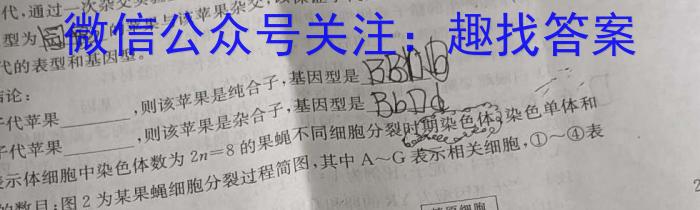 代,通过一次杂交实验
微信公众号关注:趣找答案
型为
的苹果与该苹果杂交,
代的表型和基因型。
结论:
子代苹果________,则该苹果是纯合子,基因型是
子代苹果________,则该苹果是杂合子,基因型是BbDd
表示体细胞中染色体数为2n=8的果蝇不同细胞分裂时期染色体、染色单体和
的数目;图2为某果蝇细胞分裂过程简图,其中A~G表示相关细胞,①~④表
精原细胞
2